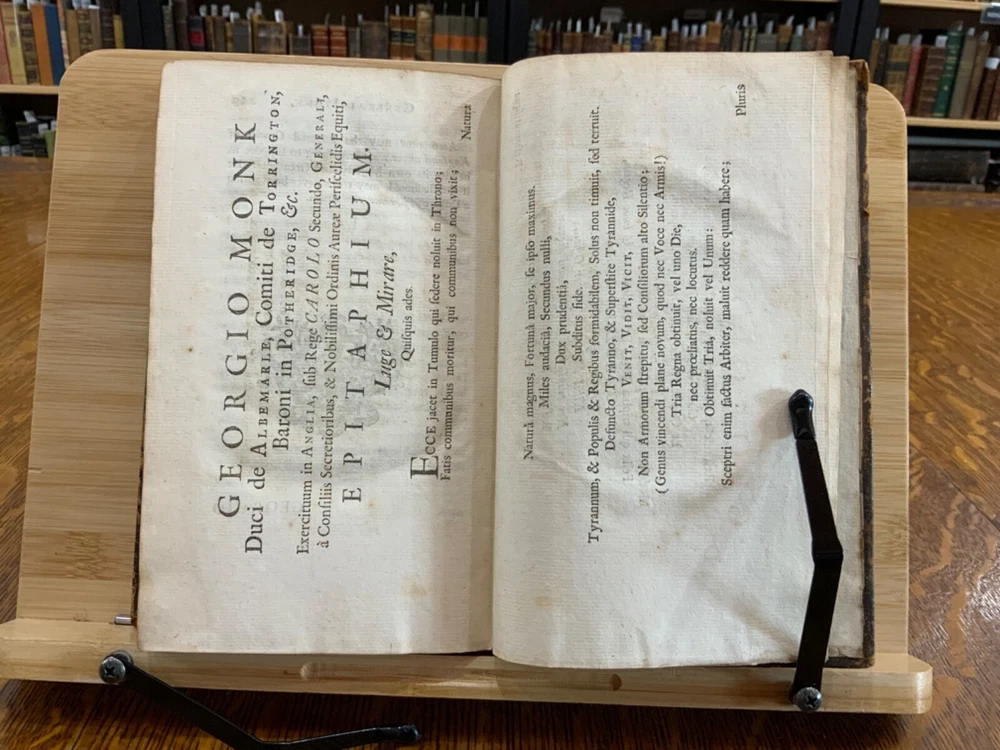 GEORGIO MONK
Duci de ALBEMARLE, Comiti de TORRINGTON,
Baroni in POTHERIDGE, &c.
Exercituum in ANGLIA, ſub Rege CAROLO Secundo, GENERALI,
à Conſiliis Secretioribus, & Nobiliſſimi Ordinis Aureæ Periſcelidis Equiti,
EPITAPHIUM.
Luge & Mirare,
Quiſquis ades.
ECCE jacet in Tumulo qui ſedere noluit in Throno;
Fatis communibus moritur, qui communibus non vixit;
Natura
Naturâ magnus, Fortunâ major, ſe ipſo maximus.
Miles audaciâ, Secundus nulli,
Dux prudentiâ,
Subditus fide.
Tyrannum, & Populis & Regibus formidabilem, Solus non timuit, ſed terruit.
Defuncto Tyranno, & Superſtite Tyrannide,
VENIT, VIDIT, VICIT,
Non Armorum ſtrepitu, ſed Conſiliorum alto Silentio;
(Genus vincendi plane novum, quod nec Voce nec Armis!)
Tria Regna obtinuit, vel uno Die,
nec prœliatus, nec locutus.
Obtinuit Tria, noluit vel Unum:
Sceptri enim factus Arbiter, maluit reddere quam habere;
Pluris